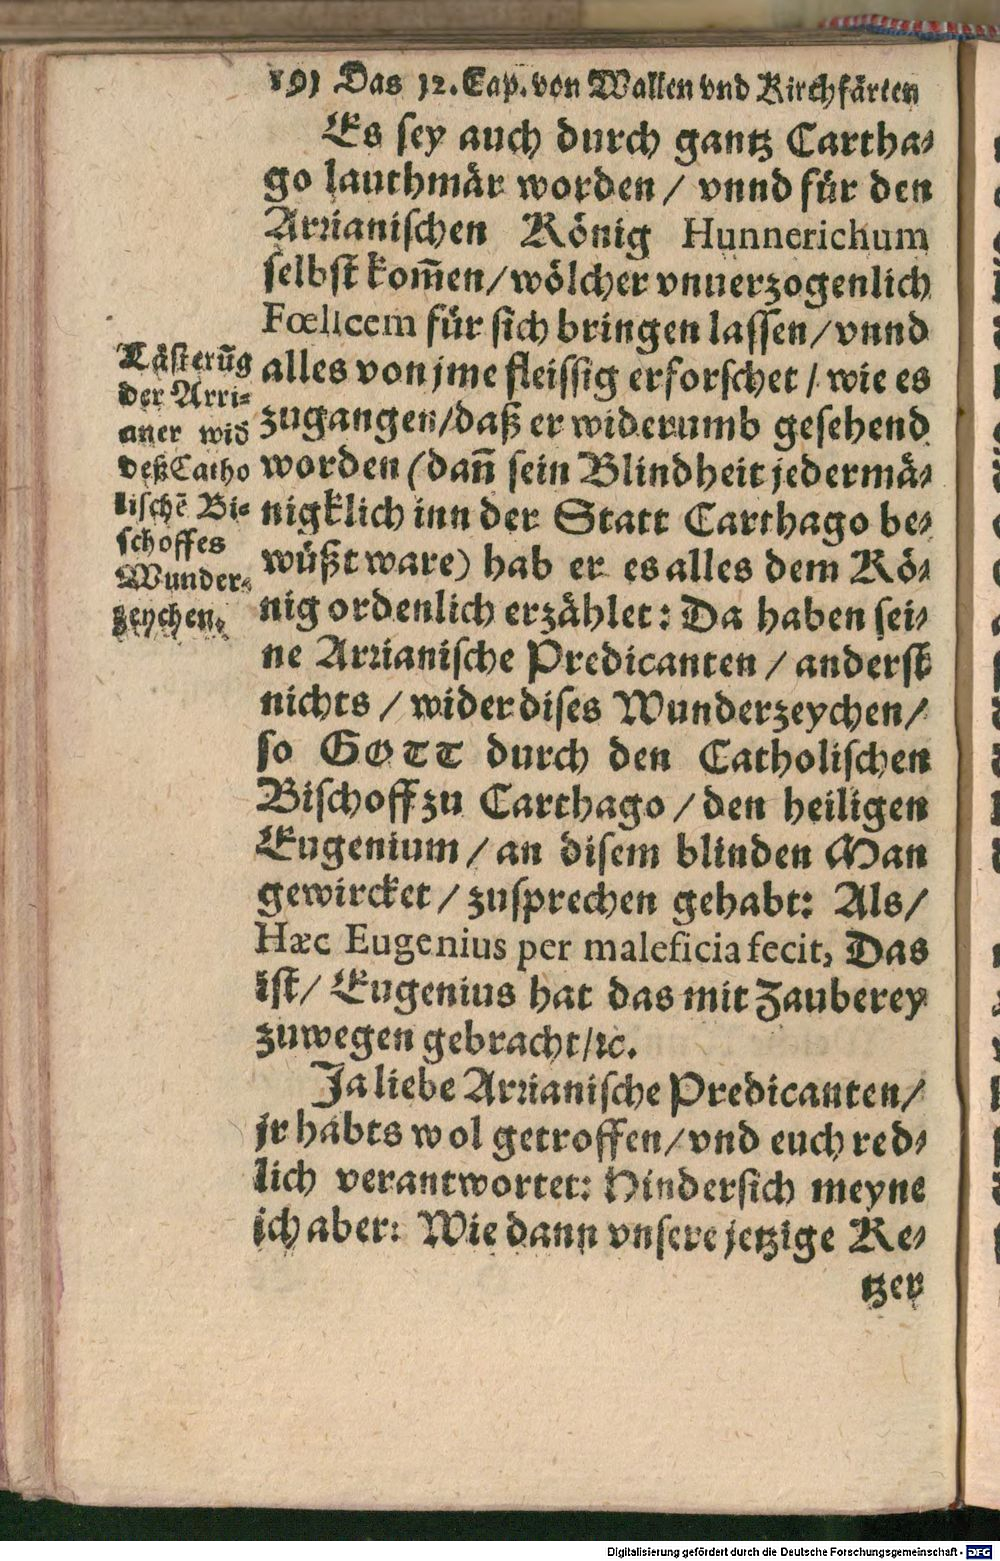 191 Das 12. Cap. von Wallen vnd Kirchfärten
Es sey auch durch gantz Cartha-
go lauthmär worden / vnnd für den
Arrianischen König Hunnerichum
selbst kom̄en / wölcher vnuerzogenlich
Fœlicem für sich bringen lassen / vnnd
alles von jme fleissig erforschet / wie es
zugangen / daß er widerumb gesehend
worden (dañ sein Blindheit jedermä-
nigklich inn der Statt Carthago be-
wüßt ware) hab er es alles dem Kö-
nig ordenlich erzählet: Da haben sei-
ne Arrianische Predicanten / anderst
nichts / wider dises Wunderzeychen /
so GOTT durch den Catholischen
Bischoff zu Carthago / den heiligen
Eugenium / an disem blinden Man
gewircket / zusprechen gehabt: Als /
Hæc Eugenius per maleficia fecit, Das
ist / Eugenius hat das mit Zauberey
zuwegen gebracht / ꝛc.
Ja liebe Arrianische Predicanten /
jr habts wol getroffen / vnd euch red-
lich verantwortet: Hindersich meyne
ich aber: Wie dann vnsere jetzige Ke-
tzer
Lästerūg
der Arri-
aner wid
deß Catho
lischē Bi-
schoffes
Wunder-
zeychen.
Digitalisierung gefördert durch die Deutsche Forschungsgemeinschaft - DFG